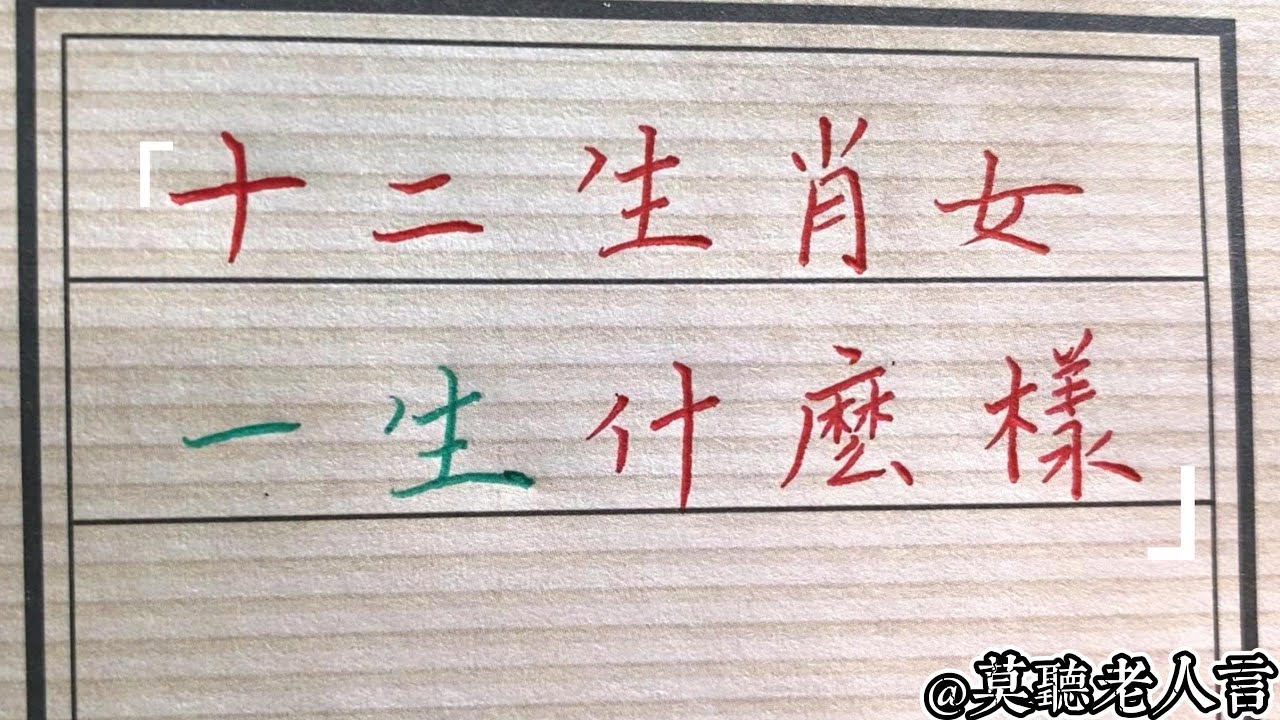 「十二生肖女
一生什麼樣」
@莫聽老人言